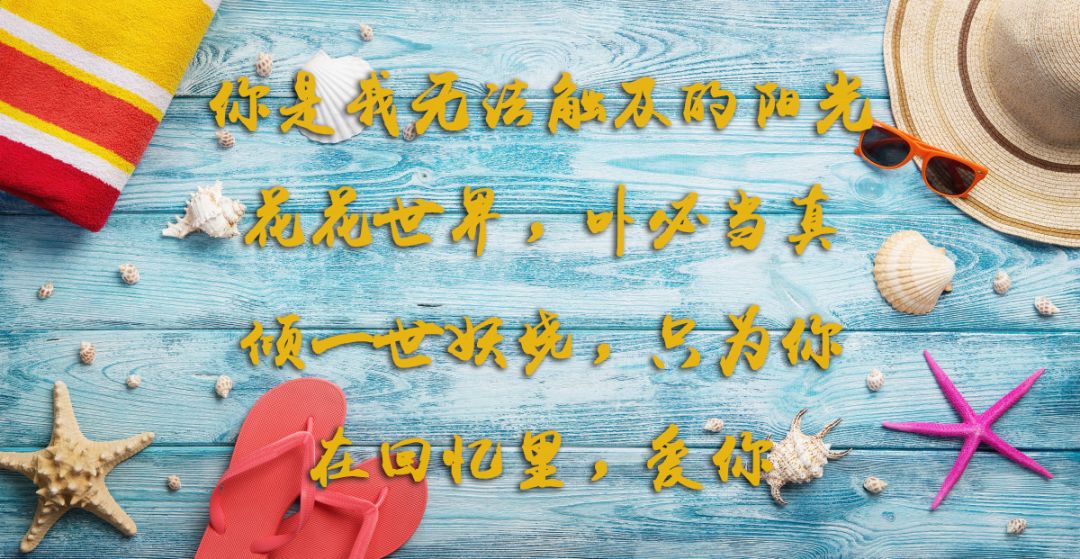 你是我无法触及的阳光
花花世界，卟必当真
倾一世妖娆，只为你
在回忆里，爱你